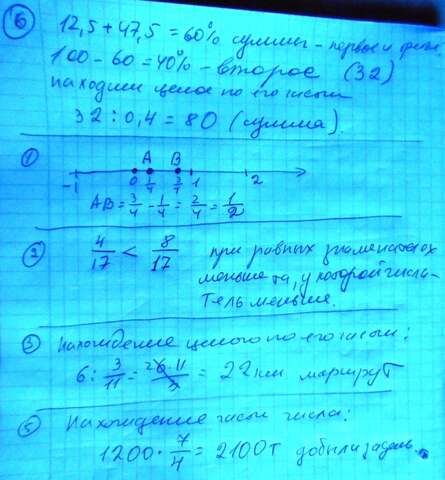 6 12,5 + 47,5 = 60% суммы - первое и
100 - 60 = 40% - второе (32)
находим целое по его части
32 : 0,4 = 80 (сумма).
1 A B
-1 0 1/4 3/4 1 2
AB = 3/4 - 1/4 = 2/4 = 1/2
2 4/17 < 8/17 при равных знаменателях
меньше та, у которой числи-
тель меньше.
3 Нахождение целого по его части:
6 : 3/11 = 6·11/3 = 22 км маршрут
5 Нахождение части числа:
1200 · 7/4 = 2100 т добыли за день.